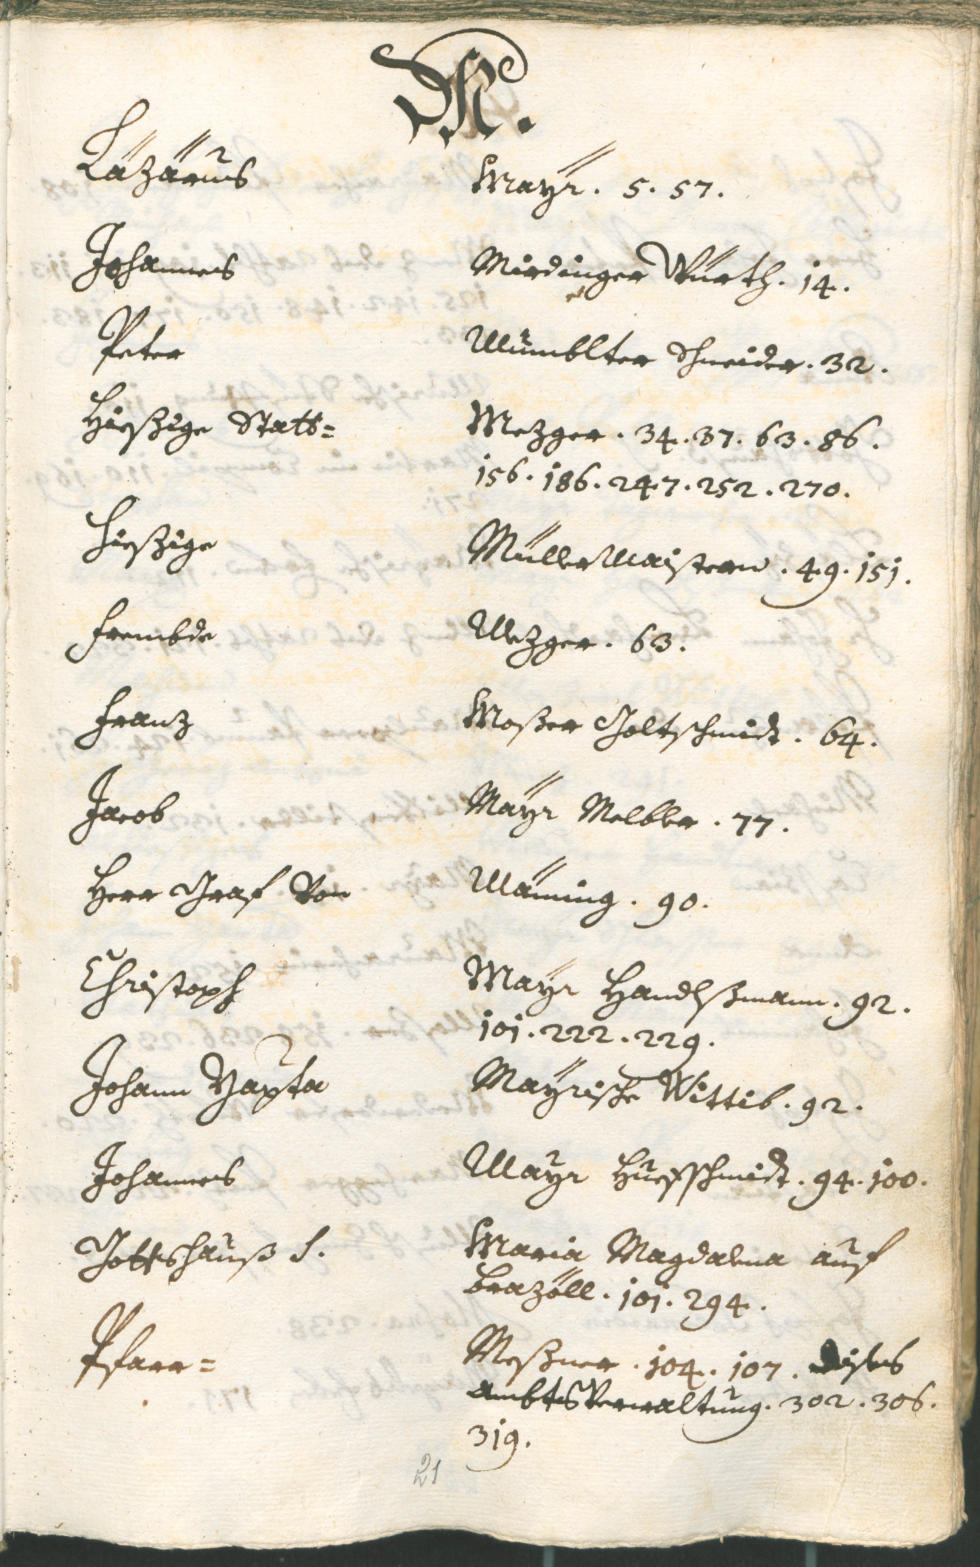 M.
Lazarus Maÿr. 5. 57.
Johannes Mirdinger Würth. 14.
Peter Mumblter Schneider. 32.
Hießige Statt= Mezger. 34. 37. 63. 86.
156. 186. 247. 252. 270.
Hießige Müller Maistern. 49. 151.
frembde Mezger. 63.
Franz Moßer Goltschmidt. 64.
Jacob Maÿr Melbler. 77.
Herr Graf Von Mäming. 90.
Christoph Maÿr Handlßmann. 92.
101. 222. 229.
Johann Bapta Maÿrische Wittib. 92.
Johannes Maÿr Huefschmidt. 94. 100.
Gottshauß S. Maria Magdalena auf
Prazöll. 101. 294.
Pfarr= Meßner. 104. 107. dises
Ambts Verwaltung. 302. 306.
319.
21